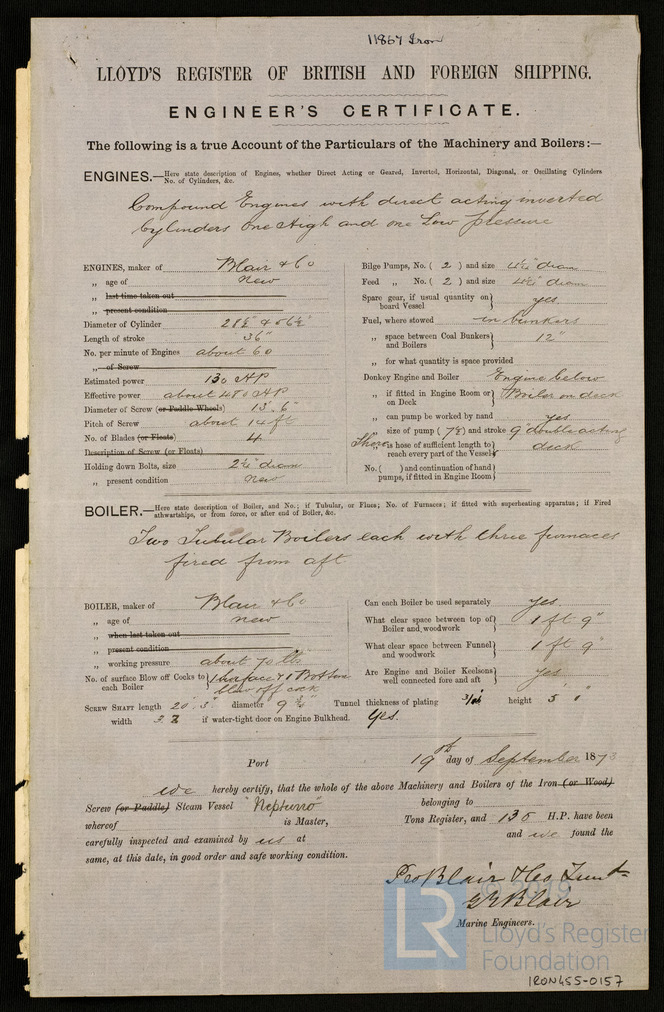 11867 Iron
LLOYD'S REGISTER OF BRITISH AND FOREIGN SHIPPING.
ENGINEER'S CERTIFICATE.
The following is a true Account of the Particulars of the Machinery and Boilers:—
ENGINES.—Here state description of Engines, whether Direct Acting or Geared, Inverted, Horizontal, Diagonal, or Oscillating Cylinders
No. of Cylinders, &c.
Compound Engines with direct acting inverted
Cylinders One High and one Low pressure
ENGINES, maker of Blair & Co
„ age of New
„ last time taken out
„ present condition
Diameter of Cylinder
Length of stroke 36"
No. per minute of Engines about 60
„ of Screw
Estimated power 130 HP
Effective power about 480 HP
Diameter of Screw (or Paddle Wheels) 13' 6"
Pitch of Screw about 14 ft
No. of Blades (or Floats) 4
Description of Screw (or Floats)
Holding down Bolts, size diam
„ present condition New
Bilge Pumps, No. ( 2 ) and size diam
Feed „ No. ( 2 ) and size diam
Spare gear, if usual quantity on board Vessel yes
Fuel, where stowed in bunkers
„ space between Coal Bunkers and Boilers 12"
„ for what quantity is space provided
Donkey Engine and Boiler Engine below
„ if fitted in Engine Room or on Deck Boiler on deck
„ can pump be worked by hand yes
„ size of pump ( 7½ ) and stroke 9" double acting
„ is hose of sufficient length to reach every part of the Vessel deck
No. ( ) and continuation of hand pumps, if fitted in Engine Room
BOILER.—Here state description of Boiler, and No.; if Tubular, or Flues; No. of Furnaces; if fitted with superheating apparatus; if Fired
athwartships, or from fore, or after end of Boiler, &c.
Two Tubular Boilers each with three furnaces
fired from aft
BOILER, maker of Blair & Co
„ age of new
„ when last taken out
„ present condition
„ working pressure about 70 lbs
No. of surface Blow off Cocks to each Boiler 1 Surface & 1 Bottom blow off cock
Can each Boiler be used separately yes
What clear space between top of Boiler and woodwork 1 ft 9"
What clear space between Funnel and woodwork 1 ft 9"
Are Engine and Boiler Keelsons well connected fore and aft yes
SCREW SHAFT length 20' 3" diameter 9 ¾" Tunnel thickness of plating 3/16 height 5'
width if water-tight door on Engine Bulkhead. Yes.
Port 19th day of September 1873
we hereby certify, that the whole of the above Machinery and Boilers of the Iron (or Wood)
Screw (or Paddle) Steam Vessel "Neptuno" belonging to
whereof is Master, Tons Register, and 130 H.P. have been
carefully inspected and examined by us at and we found the
same, at this date, in good order and safe working condition.
Pro Blair & Co
G Y Blair
Marine Engineers.
© 2019
LR
Lloyd's Register
Foundation
IRON455-0157